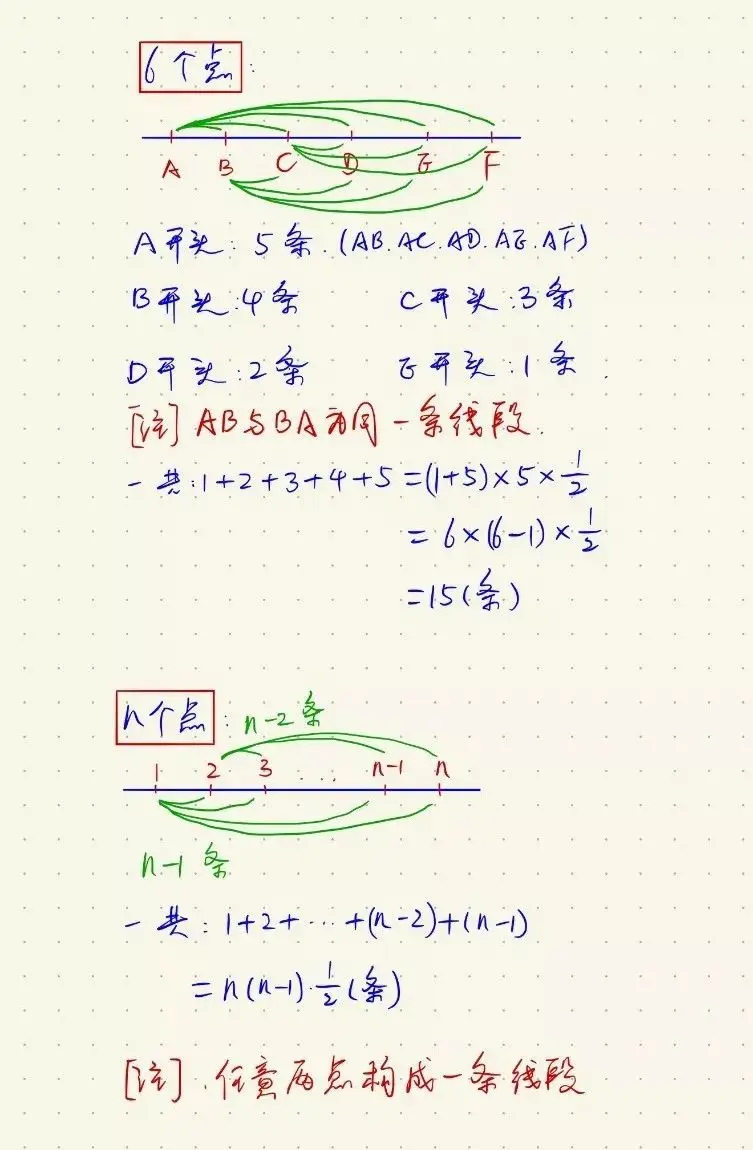 6个点:
A B C D E F
A开头: 5条. (AB. AC. AD. AE. AF)
B开头:4条 C开头:3条
D开头:2条 E开头:1条.
[注] AB与BA为同一条线段.
一共:1+2+3+4+5=(1+5)×5×1/2
=6×(6-1)×1/2
=15(条)
n个点: n-2条
1 2 3 ... n-1 n
n-1条
一共: 1+2+⋯+(n-2)+(n-1)
=n(n-1)·1/2(条)
[注].任意两点构成一条线段